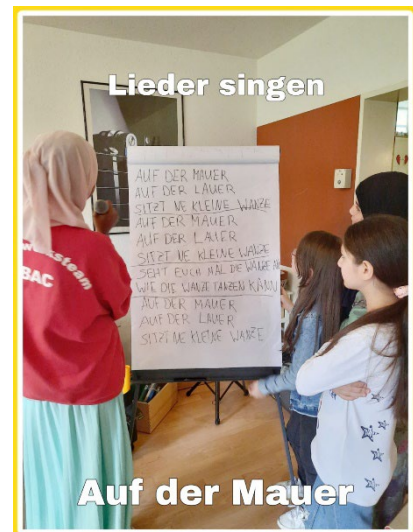 Lieder singen
AUF DER MAUER
AUF DER LAUER
SITZT NE KLEINE WANZE
AUF DER MAUER
AUF DER LAUER
SITZT NE KLEINE WANZE
SEHT EUCH MAL DIE WANZE AN
WIE DIE WANZE TANZEN KANN
AUF DER MAUER
AUF DER LAUER
SITZT NE KLEINE WANZE
ksteam
BAC
Auf der Mauer